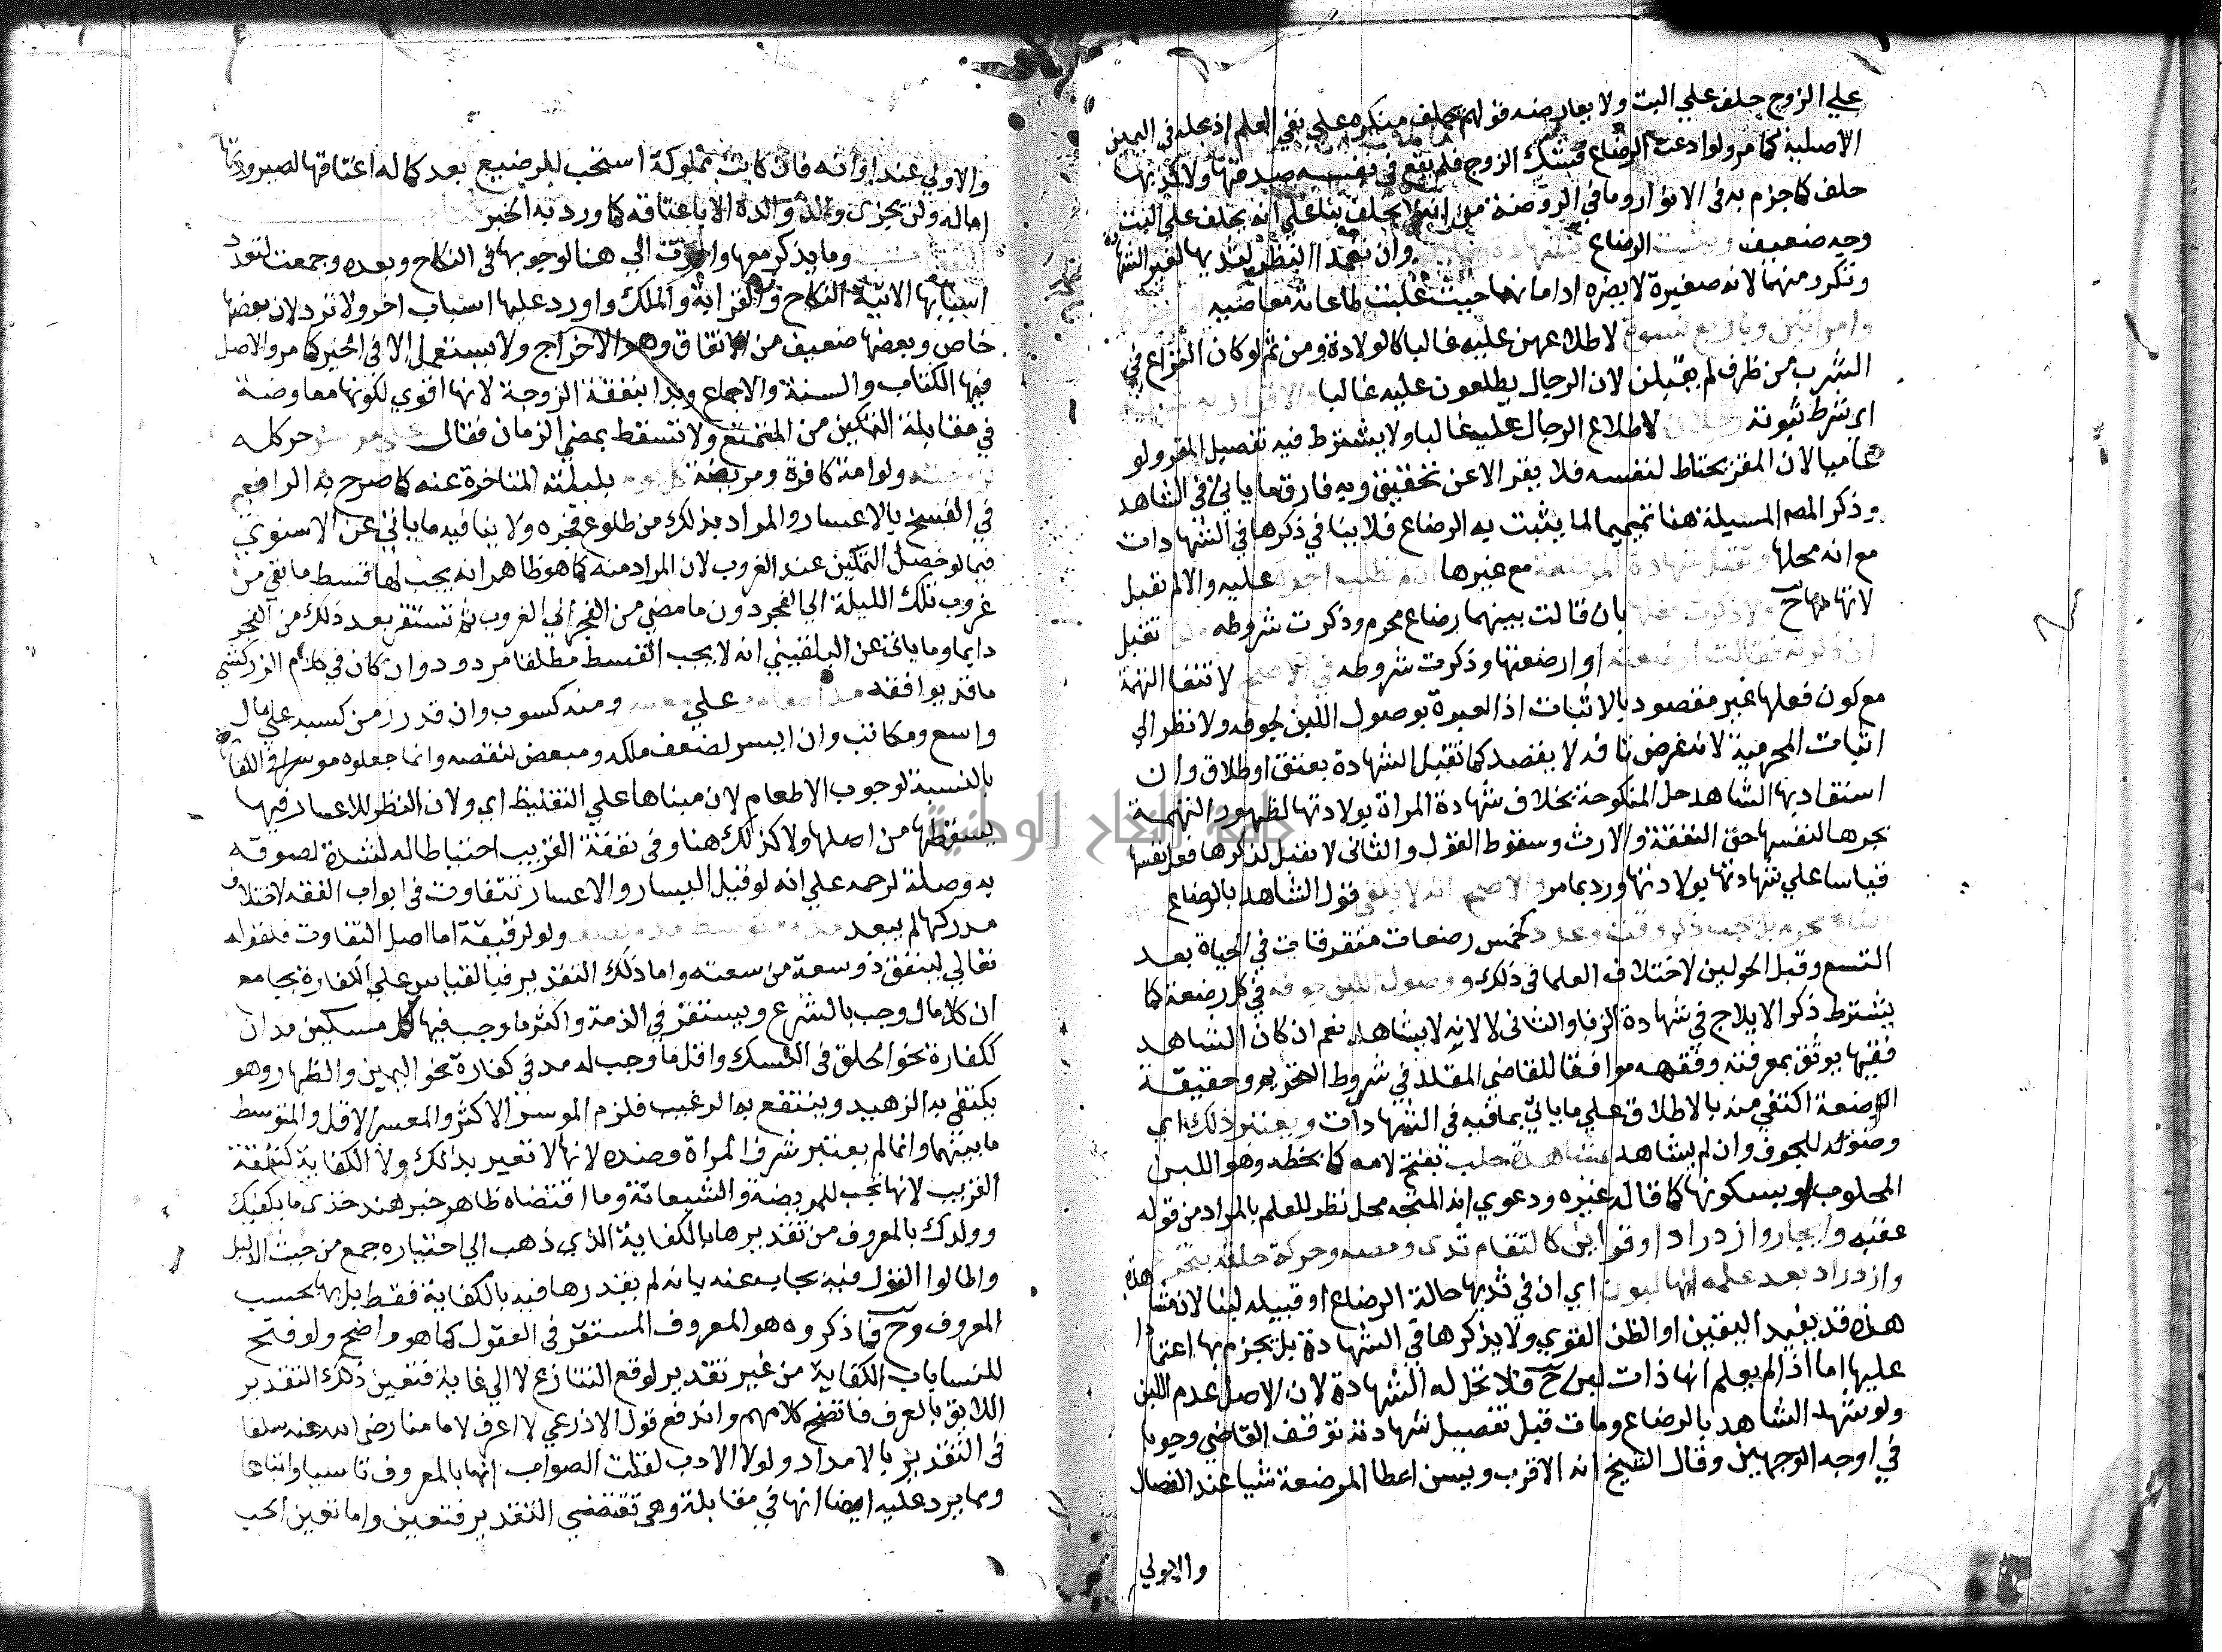 علي الزوج حلف علي البت ولا يعارضه قولهم يحلف منكره علي نفي العلم اذ محله في اليمين
الاصلية كما مر ولو ادعت الرضاع فشك الزوج فلم يقع في نفسه صدقها ولا كذبها
حلف كما جزم به في الانوار وما في الروضة من انه لا يحلف بناء علي انه يحلف علي البت
وجه ضعيف ويثبت الرضاع وان تعمد النظر لثديها لغير الشهادة
وتكرر منهما لانه صغيرة لا يضره ادامانها حيث غلبت طاعاته معاصيه
وامراتين وباربع نسوة لاطلاعهن عليه غالبا كالولادة ومن ثم لو كان النزاع في
الشرب من ظرف لم يقبلن لان الرجال يطلعون عليه غالبا والاقرار به شرطه
اي شرط ثبوته رجلان لاطلاع الرجال عليه غالبا ولا يشترط فيه تفصيل المقر ولو
عاميا لان المقر يحتاط لنفسه فلا يقر الا عن تحقيق وبه فارق ما ياتي في الشاهد
وذكر المصـ المسيلة هنا تتميما لما يثبت به الرضاع فلا ينافي ذكرها في الشهادات
مع انه محلها وتقبل شهادة المرضعة مع غيرها ان لم تطلب اجرة عليه والا لم تقبل
لانها متهمة حـ ولا ذكرت فعلها بان قالت بينهما رضاع محرم وذكرت شروطه تقبل
ان ذكرته فقالت ارضعته او ارضعتها وذكرت شروطه في الاصح لانتفا التهمة
مع كون فعلها غير مقصود بالاثبات اذ العبرة بوصول اللبن لجوفه ولا نظر الي
اثبات المحرمية لانه غرض تافه لا يقصد كما تقبل الشهادة بعتق او طلاق وان
استفاد بها الشاهد حل المنكوحة بخلاف شهادة المراة بولادتها لظهور التهمة
بجرها لنفسها حق النفقة والارث وسقوط القول والثاني لا تقبل لذكرها فعل نفسها
قياسا علي شهادتها بولادتها ورد بما مر والاصح انه لا يكفي قول الشاهد بالرضاع
رضاع محرم بل يجب ذكر وقت وعدد كخمس رضعات متفرقات في الحياة بعد
التسع وقبل الحولين لاختلاف العلما في ذلك ووصول اللبن جوفه في كل رضعة كما
يشترط ذكر الايلاج في شهادة الزنا والثاني لا لانه لا يشاهد نعم ان كان الشاهد
فقيها يوثق بمعرفته وفقهه موافقا للقاضي المقلد في شروط التحريم وحقيقة
الرضعة اكتفي منه بالاطلاق علي ما ياتي بما فيه في الشهادات ويعتبر ذلك اي
وصوله للجوف وان لم يشاهد بمشاهدة حلب بفتح لامه كما بخطه وهو اللبن
المحلوب او بسكونها كما قاله غيره ودعوي انه المتجه محل نظر للعلم بالمراد من قوله
عقبه وايجار وازدراد او قراين كالتقام ثدي ومصه وحركة حلقه بتجرع
وازدراد بعد علمه انها لبون اي ان في ثديها حالة الرضاع او قبيله لبنا لان مشاهدة
هذه قد يفيد اليقين او الظن القوي ولا يذكرها في الشهادة بل يجزم بها اعتمادا
عليها اما اذا لم يعلم انها ذات لبن حـ فلا تحل له الشهادة لان الاصل عدم اللبن
ولو شهد الشاهد بالرضاع ومات قبل تفصيل شهادته توقف القاضي وجوبا
في اوجه الوجهين وقال الشيخ انه الاقرب ويسن اعطا المرضعة شيا عند الفصال
والاولي
والاولي عند اوانه فان كانت مملوكة استحب للرضيع بعد كماله اعتاقها لصيرورتها
اما له ولن يجزي ولد والده الا باعتاقه كما ورد به الخبر
وما يذكر معها واخرت الي هنا لوجوبها في النكاح وبعده وجمعت لتعدد
اسبابها الاتية النكاح والقرابة والملك واورد عليها اسباب اخر ولا ترد لان بعضها
خاص وبعضها ضعيف من الانفاق وهو الاخراج ولا يستعمل الا في الخير كما مر والاصل
فيها الكتاب والسنة والاجماع وبدا بنفقة الزوجة لانها اقوي لكونها معاوضة
في مقابلة التمكين من التمتع ولا تسقط بمضي الزمان فقال حر كله
لزوجته ولو امة كافرة ومريضة كل يوم بليلته المتاخرة عنه كما صرح به الرافعي
في الفسخ بالاعسار والمراد بذلك من طلوع فجره ولا ينافيه ما ياتي عن الاسنوي
فيما لو حصل التمكين عند الغروب لان المراد منه كما هو ظاهر انه يجب لها قسط ما بقي من
غروب تلك الليلة الي الفجر دون ما مضي من الفجر الي الغروب ثم تستقر بعد ذلك من الفجر
دايما وما ياتي عن البلقيني انه لا يجب القسط مطلقا مردود وان كان في كلام الزركشي
ما قد يوافقه مد طعام و علي معسر ومنه كسوب وان قدر زمن كسبه علي مال
واسع ومكاتب وان ايسر لضعف ملكه ومبعض لنقصه وانما جعلوه موسرا في الكفارة
بالنسبة لوجوب الاطعام لان مبناها علي التغليظ اي ولان النظر للاعسار فيها
يسقطها من اصلها ولا كذلك هنا وفي نفقة القريب احتياطا له لشدة لصوقه
به وصلة لرحمه علي انه لو قيل اليسار والاعسار تتفاوت في ابواب الفقه لاختلاف
مدركها لم يبعد مد ومتوسط مد ونصف ولو لرقيقة اما اصل التفاوت فلقوله
تعالي لينفق ذو سعة من سعته واما ذلك التقدير فبالقياس علي الكفارة بجامع
ان كلا مال وجب بالشرع ويستقر في الذمة واكثر ما وجب فيها لكل مسكين مدان
ككفارة نحو الحلق في النسك واقل ما وجب له مد في كفارة نحو اليمين والظهار وهو
يكتفي به الزهيد وينتفع به الرغيب فلزم الموسر الاكثر والمعسر الاقل والمتوسط
ما بينهما وانما لم يعتبر شرف المراة وضده لانها لا تعير بذلك ولا الكفاية كنفقة
القريب لانها تجب للمريضة والشبعانة وما اقتضاه ظاهر خبر هند خذي ما يكفيك
وولدك بالمعروف من تقديرها بالكفاية الذي ذهب الي اختياره جمع من حيث الدليل
واطالوا القول فيه يجاب عنه بانه لم يقدرها فيه بالكفاية فقط بل بها بحسب
المعروف وحـ فما ذكروه هو المعروف المستقر في العقول كما هو واضح ولو فتح
للنسا باب الكفاية من غير تقدير لوقع التنازع لا الي غاية فتعين ذلك التقدير
اللايق بالعرف فاتضح كلامهم واندفع قول الاذرعي لا اعرف لامامنا رضي الله عنه سلفا
في التقدير بالامداد ولولا الادب لقلت الصواب انها بالمعروف تاسيا واتباعا
ومما يرد عليه ايضا انها في مقابلة وهي تقتضي التقدير فتعين واما تعين الحب
جامعة النجاح الوطنية